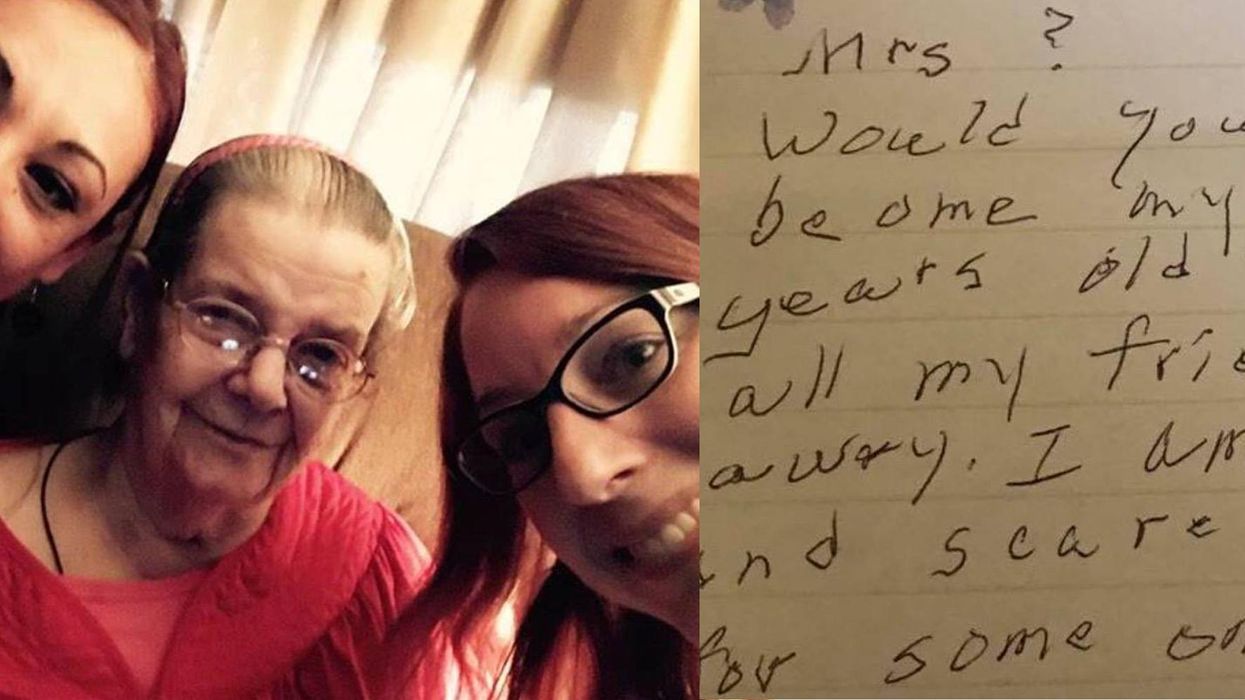 Mrs ?
Would you
be ome my
years old
all my frie
away. I am
and scare
for some on